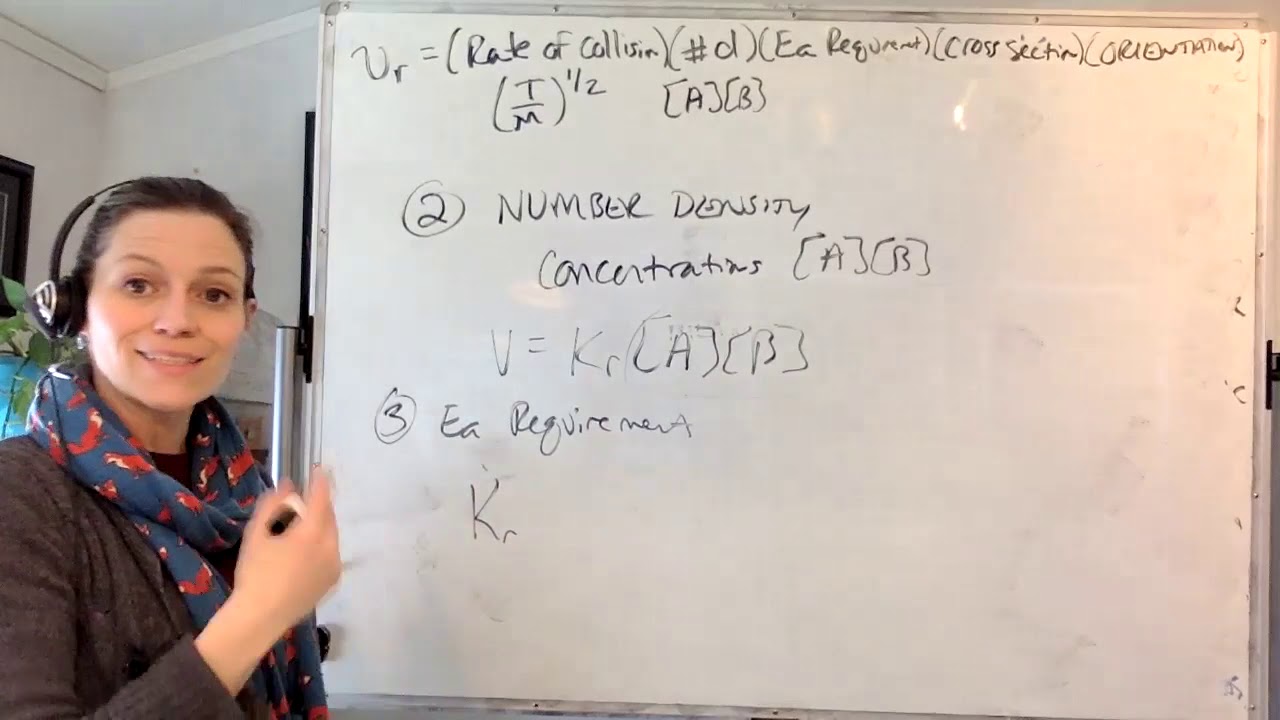 υr = (Rate of Collision)(#d)(Ea Requirement)(Cross Section)(ORIENTATION)
(T/m)^1/2 [A][B]
② NUMBER DENSITY
Concentrations [A][B]
V = Kr[A][B]
③ Ea Requirement
Kr